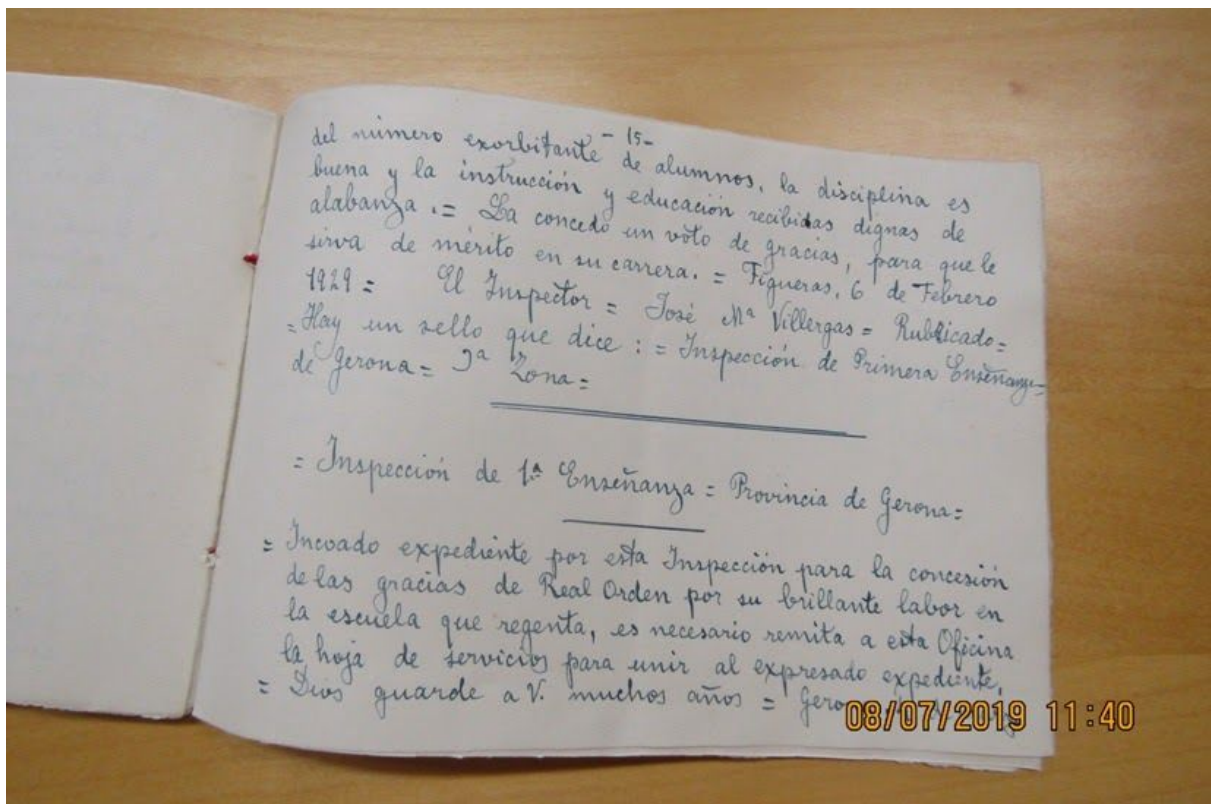 - 15 -
del número exorbitante de alumnos, la disciplina es
buena y la instrucción y educación recibidas dignas de
alabanza .= La concedo un voto de gracias, para que le
sirva de mérito en su carrera. = Figueras, 6 de Febrero
1929 = El Inspector = José Mª Villergas = Rubricado =
= Hay un sello que dice : = Inspección de Primera Enseñanza =
de Gerona = ª Zona =
= Inspección de 1ª Enseñanza = Provincia de Gerona =
= Incoado expediente por esta Inspección para la concesión
de las gracias de Real Orden por su brillante labor en
la escuela que regenta, es necesario remita a esta Oficina
la hoja de servicios para unir al expresado expediente.
= Dios guarde a V. muchos años =
08/07/2019 11:40